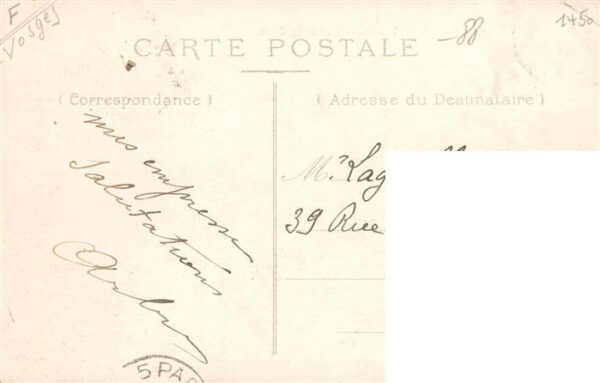 F
Vosges
-88
1450
CARTE POSTALE
( Correspondance )
( Adresse du Destinataire )
mes empressées
Salutations
Mr Lag
39 Rue
5 PAR